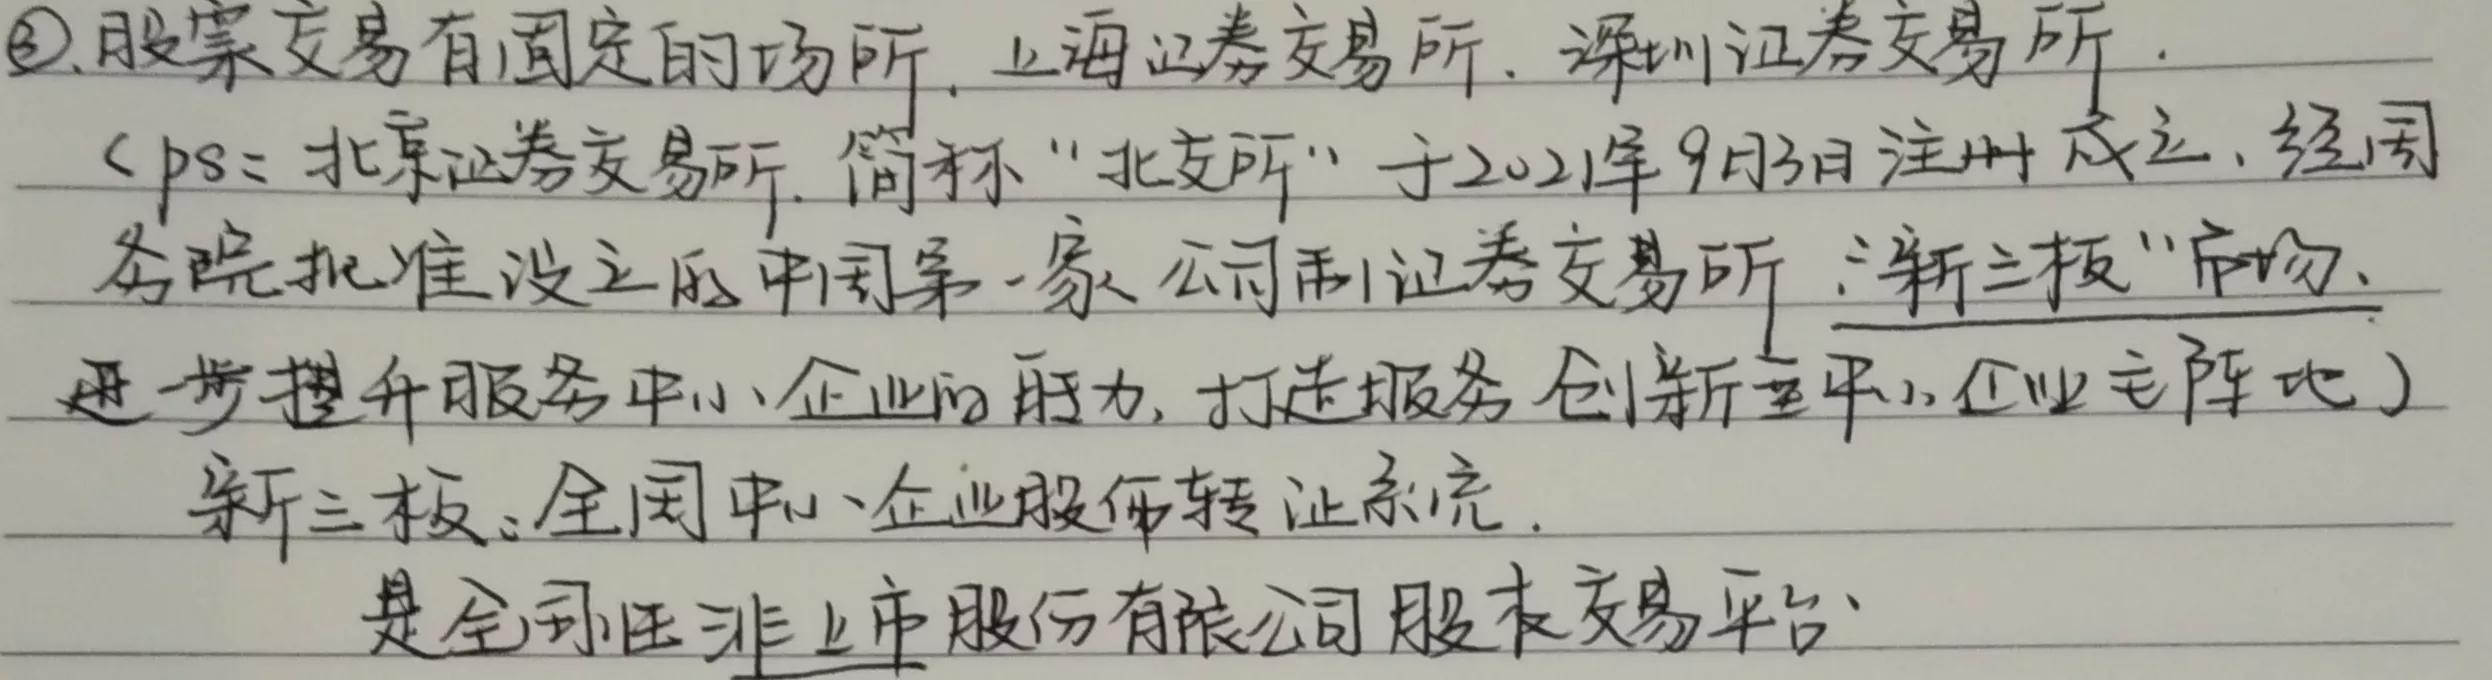 ③.股票交易有固定的场所.上海证券交易所.深圳证券交易所.
(ps:北京证券交易所.简称"北交所"于2021年9月3日注册成立、经国
务院批准设立的中国第一家公司制证券交易所:"新三板"市场、
进一步提升服务中小企业的能力,打造服务创新型中小企业主阵地)
新三板:全国中小企业股份转让系统.
是全国性非上市股份有限公司股权交易平台、